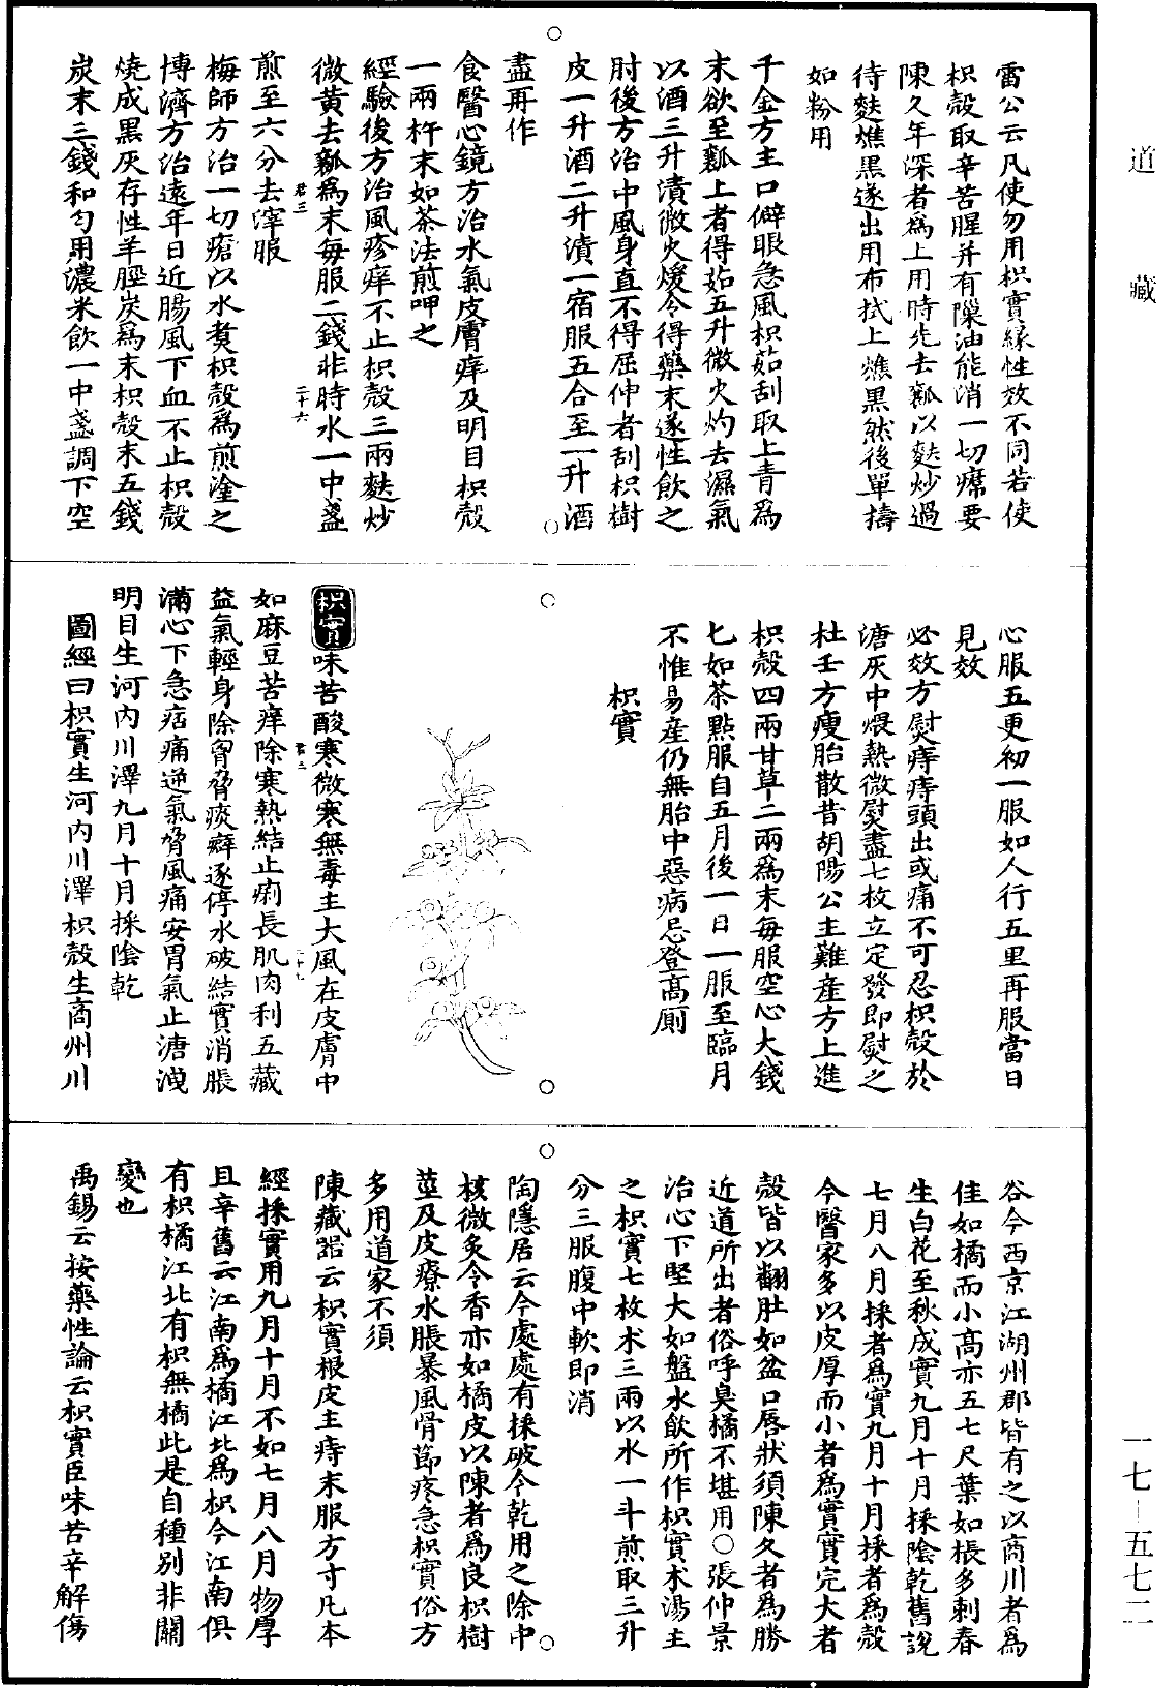 道藏
雷公云凡使勿用枳實緣性效不同若使
枳殼取辛苦腥并有隟油能消一切㾏要
陳久年深者爲上用時先去瓤以麩炒過
待麩燋黑遂出用布拭上燋黑然後單擣
如粉用
千金方主口僻眼急風枳茹刮取上青爲
末欲至瓤上者得茹五升微火灼去濕氣
以酒三升漬微火煖令得藥末遂性飲之
肘後方治中風身直不得屈伸者刮枳樹
皮一升酒二升漬一宿服五合至一升酒
盡再作
食醫心鏡方治水氣皮膚痒及明目枳殼
一兩杵末如茶法煎呷之
經驗後方治風疹痒不止枳殼三兩麩炒
微黄去瓤爲末每服二錢非時水一中盞
君三
二十六
煎至六分去滓服
梅師方治一切瘡以水煑枳殼爲煎塗之
博濟方治遠年日近腸風下血不止枳殼
燒成黑灰存性羊脛炭爲末枳殼末五錢
炭末三錢和匀用濃米飲一中盞調下空
心服五更初一服如人行五里再服當日
見效
必效方熨痔痔頭出或痛不可忍枳殼於
溏灰中煨熱微熨盡七枚立定發即熨之
杜壬方瘦胎散昔胡陽公主難産方上進
枳殼四兩甘草二兩爲末每服空心大錢
匕如茶點服自五月後一日一服至臨月
不惟易産仍無胎中惡病忌登高厠
枳實
枳實味苦酸寒微寒無毒主大風在皮膚中
如麻豆苦痒除寒熱結止痢長肌肉利五藏
益氣輕身除胷脅痰癖逐停水破結實消脹
滿心下急痞痛逆氣脅風痛安胃氣止溏洩
明目生河内川澤九月十月採陰乾
圖經曰枳實生河内川澤枳殼生商州川
谷今西京江湖州郡皆有之以商川者爲
佳如橘而小高亦五七尺葉如棖多刺春
生白花至秋成實九月十月採陰乾舊說
七月八月採者爲實九月十月採者爲殼
今醫家多以皮厚而小者爲實實完大者
殼皆以翻肚如盆口唇狀須陳久者為勝
近道所出者俗呼臭橘不堪用○張仲景
治心下堅大如盤水飲所作枳實朮湯主
之枳實七枚朮三兩以水一斗煎取三升
分三服腹中軟即消
陶隱居云今處處有採破令乾用之除中
核微炙令香亦如橘皮以陳者爲良枳樹
莖及皮療水脹暴風骨節疼急枳實俗方
多用道家不須
陳藏器云枳實根皮主痔末服方寸凡本
經採實用九月十月不如七月八月物厚
且辛舊云江南爲橘江北爲枳今江南俱
有枳橘江北有枳無橘此是自種别非關
變也
禹錫云按藥性論云枳實臣味苦辛解傷
一七－五七二